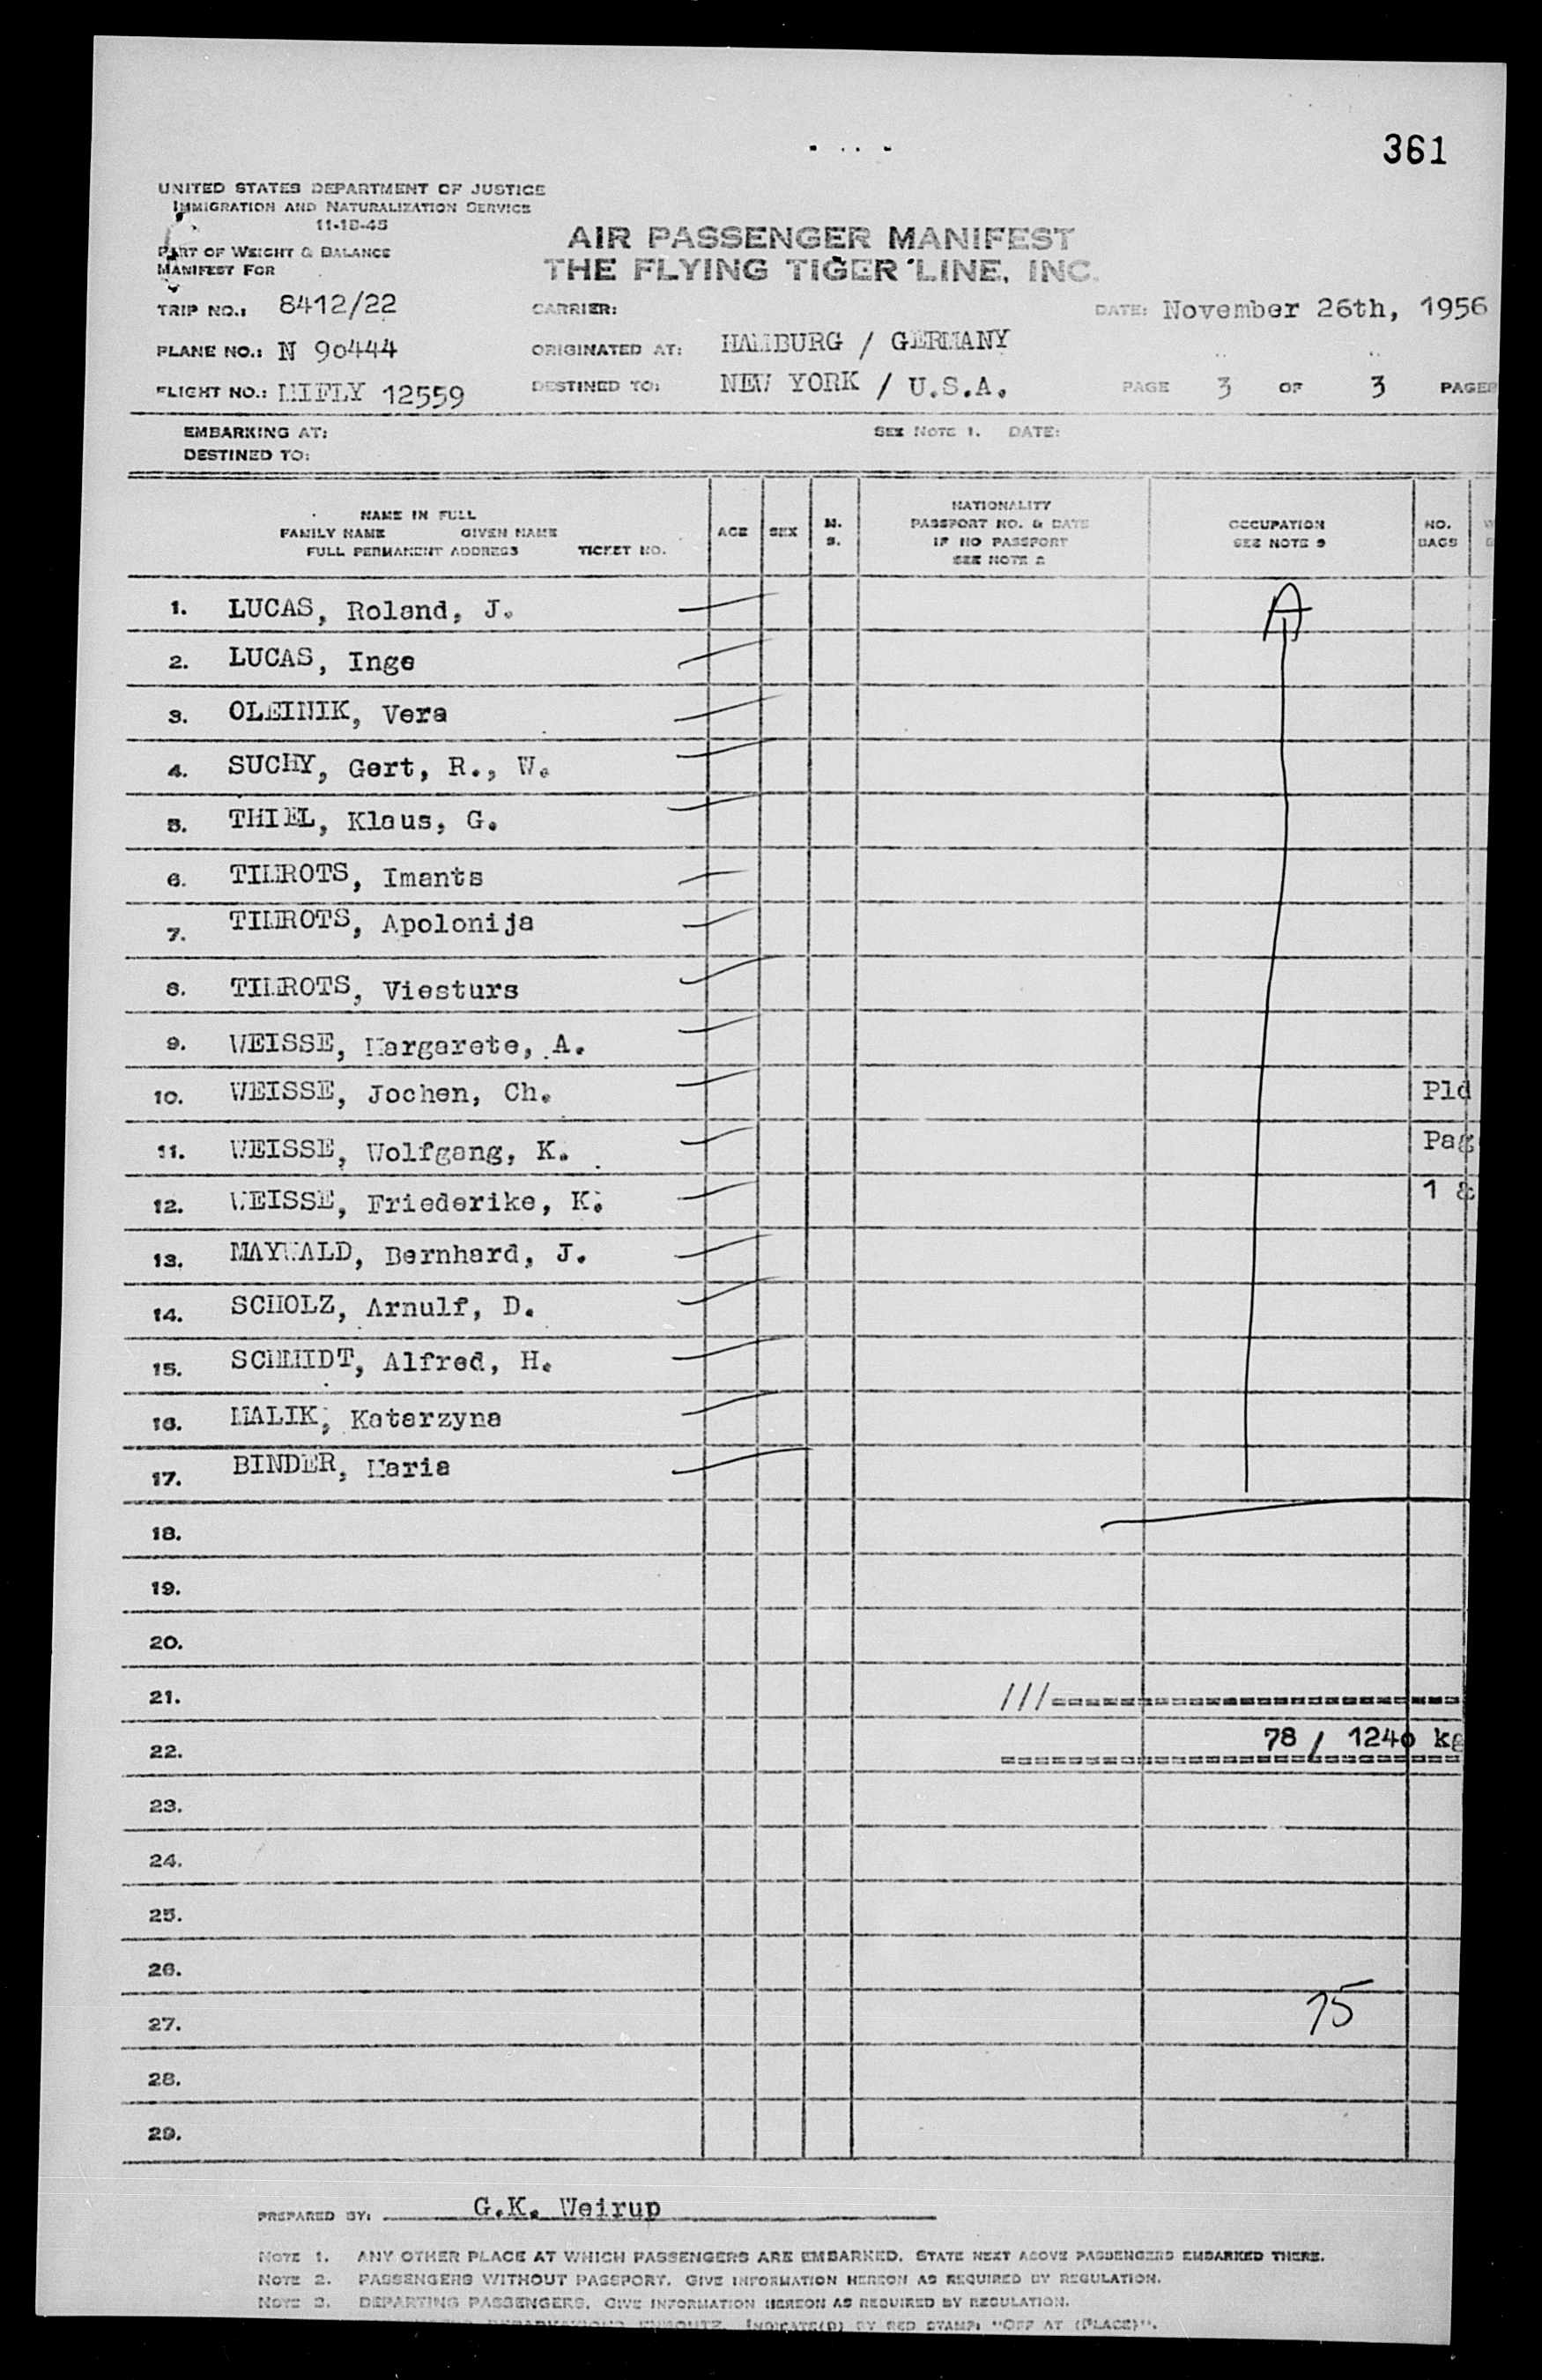 361
UNITED STATES DEPARTMENT OF JUSTICE
IMMIGRATION AND NATURALIZATION SERVICE
11-18-45
PART OF WEIGHT & BALANCE
MANIFEST FOR
AIR PASSENGER MANIFEST
THE FLYING TIGER LINE, INC.
TRIP NO.: 8412/22 CARRIER: DATE: November 26th, 1956
PLANE NO.: N 90444 ORIGINATED AT: HAMBURG / GERMANY
FLIGHT NO.: MIFLY 12559 DESTINED TO: NEW YORK / U.S.A. PAGE 3 OF 3 PAGES
EMBARKING AT: SEE NOTE 1. DATE:
DESTINED TO:
NAME IN FULL
FAMILY NAME GIVEN NAME
FULL PERMANENT ADDRESS TICKET NO.
AGE SEX M. S.
NATIONALITY
PASSPORT NO. & DATE
IF NO PASSPORT
SEE NOTE 2
OCCUPATION
SEE NOTE 3
NO.
BAGS
1. LUCAS, Roland, J. A
2. LUCAS, Inge
3. OLEINIK, Vera
4. SUCHY, Gert, R., W.
5. THIEL, Klaus, G.
6. TILTROTS, Imants
7. TILTROTS, Apolonija
8. TILTROTS, Viesturs
9. WEISSE, Margarete, A.
10. WEISSE, Jochen, Ch. Pld
11. WEISSE, Wolfgang, K. Pag
12. WEISSE, Friederike, K. 1 &
13. MAYWALD, Bernhard, J.
14. SCHOLZ, Arnulf, D.
15. SCHMIDT, Alfred, H.
16. MALIK, Katarzyna
17. BINDER, Maria
18.
19.
20.
21. ///=========================
22. 78 / 1240 kg
============================
23.
24.
25.
26.
27. 75
28.
29.
PREPARED BY: G.K. Weirup
NOTE 1. ANY OTHER PLACE AT WHICH PASSENGERS ARE EMBARKED. STATE NEXT ABOVE PASSENGERS EMBARKED THERE.
NOTE 2. PASSENGERS WITHOUT PASSPORT. GIVE INFORMATION HEREON AS REQUIRED BY REGULATION.
NOTE 3. DEPARTING PASSENGERS. GIVE INFORMATION HEREON AS REQUIRED BY REGULATION.
INDICATE(D) BY RED STAMP: "OFF AT (PLACE)".